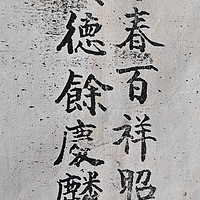 春百祥照
德餘慶麟